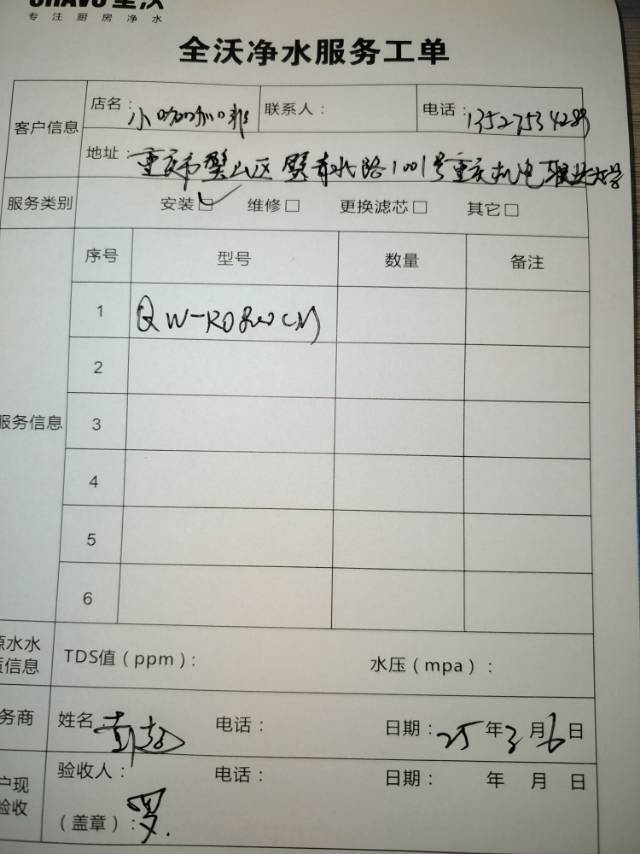 专注厨房净水
全沃净水服务工单
客户信息
店名：小咖咖啡
联系人：
电话：13527534289
地址：重庆市璧山区璧青北路1001号重庆机电职业大学
服务类别
安装☑ 维修□ 更换滤芯□ 其它□
服务信息
序号 型号 数量 备注
1 QW-RO800CM
2
3
4
5
6
源水水
质信息
TDS值（ppm）： 水压（mpa）：
务商
姓名： 电话： 日期：25年3月6日
户现
验收
验收人： 电话： 日期： 年 月 日
（盖章）：罗